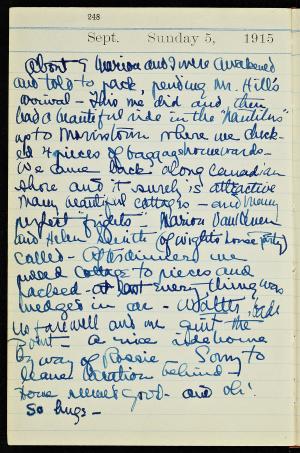 248
Sept. Sunday 5, 1915
About 9 Marion and I were awakened
and told to pack, pending Mr. Hill's
arrival - This we did and then
had a beautiful ride in the "Nautilus"
up to Morristown where we check-
ed 4 pieces of baggage homewards -
We came back along Canadian
shore and it surely is attractive
many beautiful cottages - and many
perfect
and Helen Smith (of Wight's house party)
called - After dinner we
cottage to pieces and
packed - at last every thing was
wedged in car -
us farewell and we quit the
Point - a nice ride home
by way of Rossie Sorry to
leave vacation behind -
Home seems good - and oh!
So hugs -